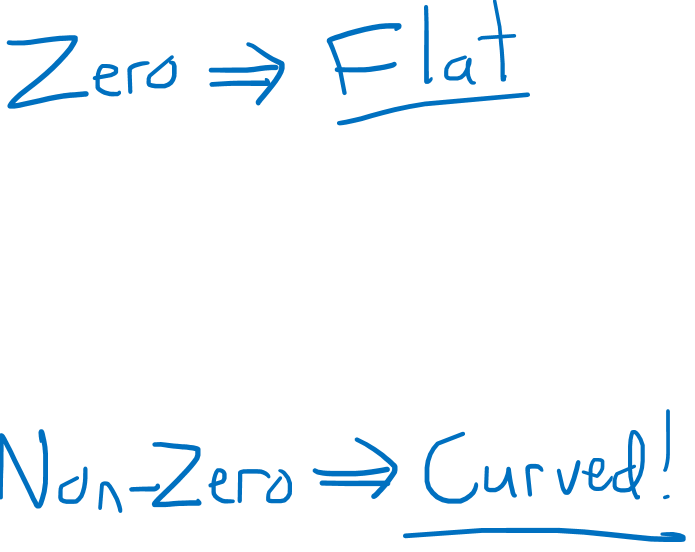 Zero ⇒ Flat
Non-Zero ⇒ Curved!